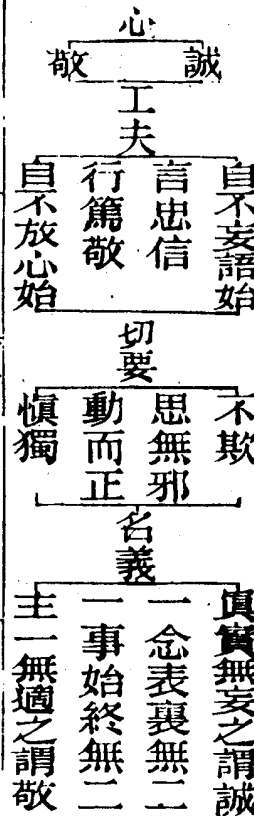 心
誠
敬
工夫
自不妄語始
言忠信
行篤敬
自不放心始
切要
不欺
思無邪
動而正
慎獨
名義
真實無妄之謂誠
一念表裏無二
一事始終無二
主一無適之謂敬